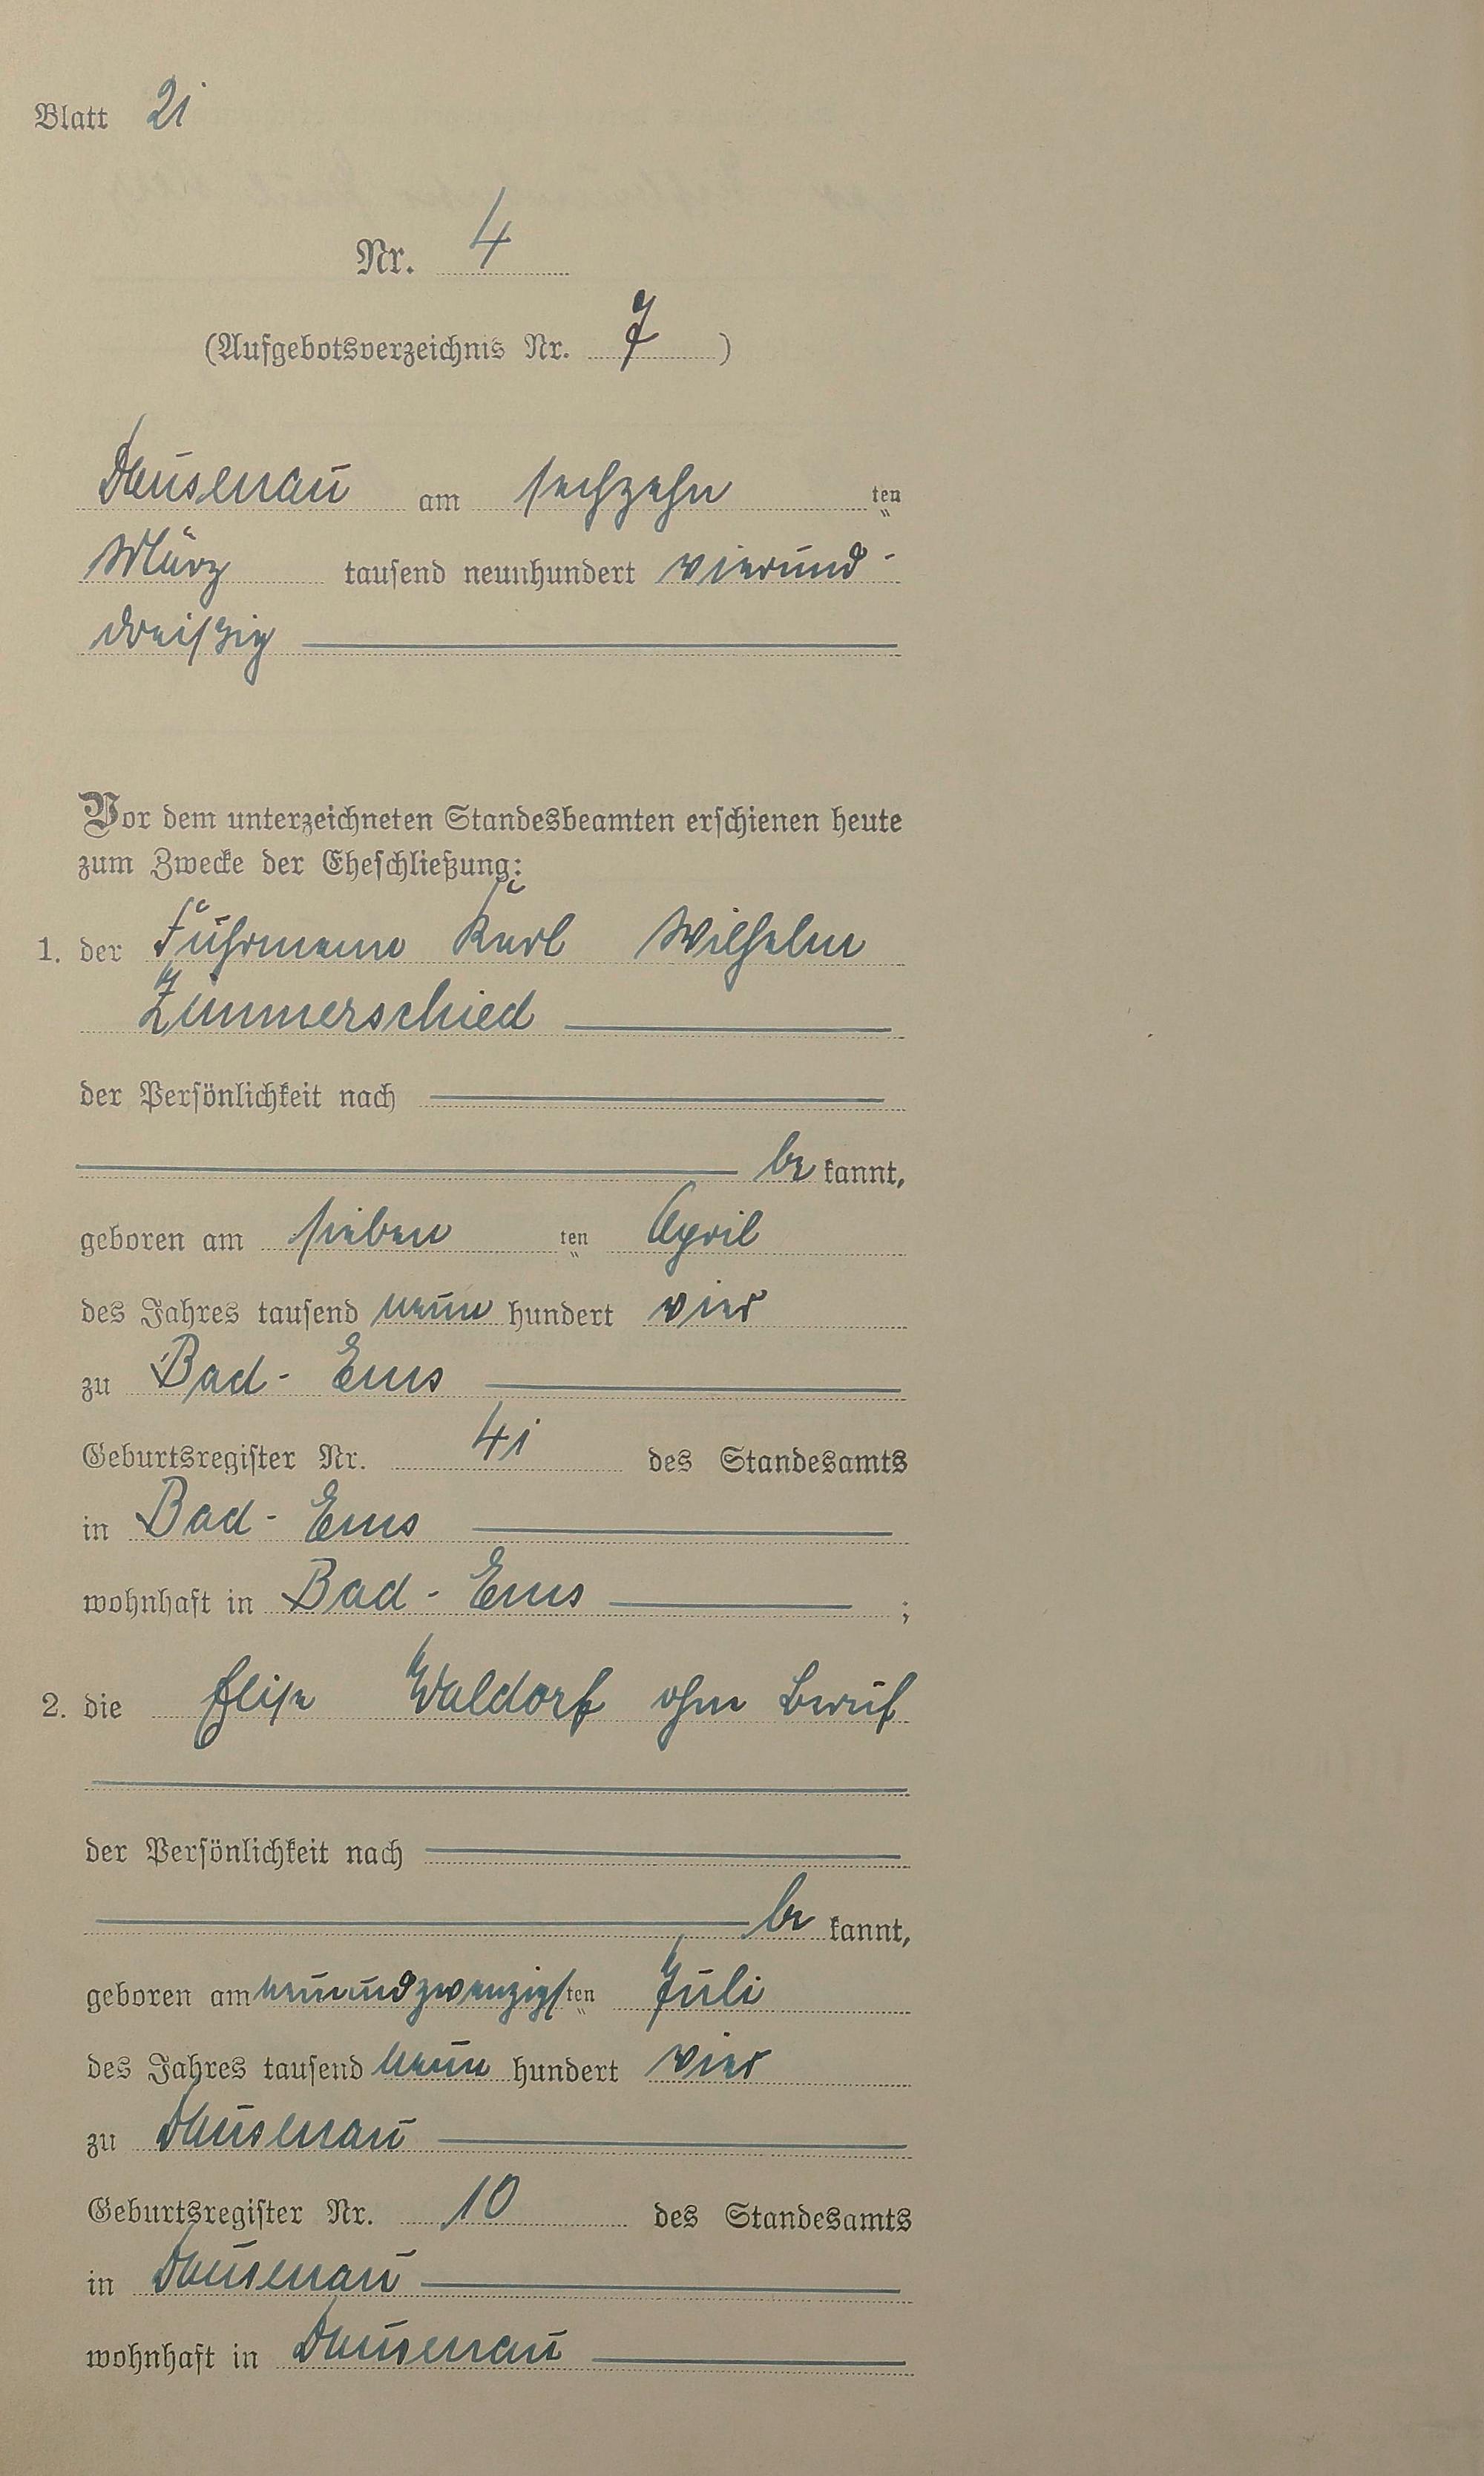 Blatt 21
Nr. 4
(Aufgebotsverzeichnis Nr. 7 )
Dausenau am sechzehn ten
März tausend neunhundert vierund-
dreißig
Vor dem unterzeichneten Standesbeamten erschienen heute
zum Zwecke der Eheschließung:
1. der Fuhrmann Karl Wilhelm
Zimmerschied
der Persönlichkeit nach
be kannt,
geboren am sieben ten April
des Jahres tausend neun hundert vier
zu Bad-Ems
Geburtsregister Nr. 41 des Standesamts
in Bad-Ems
wohnhaft in Bad-Ems ;
2. die Elise Waldorf ohne Beruf
der Persönlichkeit nach
be kannt,
geboren am neunundzwanzigsten Juli
des Jahres tausend neun hundert vier
zu Dausenau
Geburtsregister Nr. 10 des Standesamts
in Dausenau
wohnhaft in Dausenau